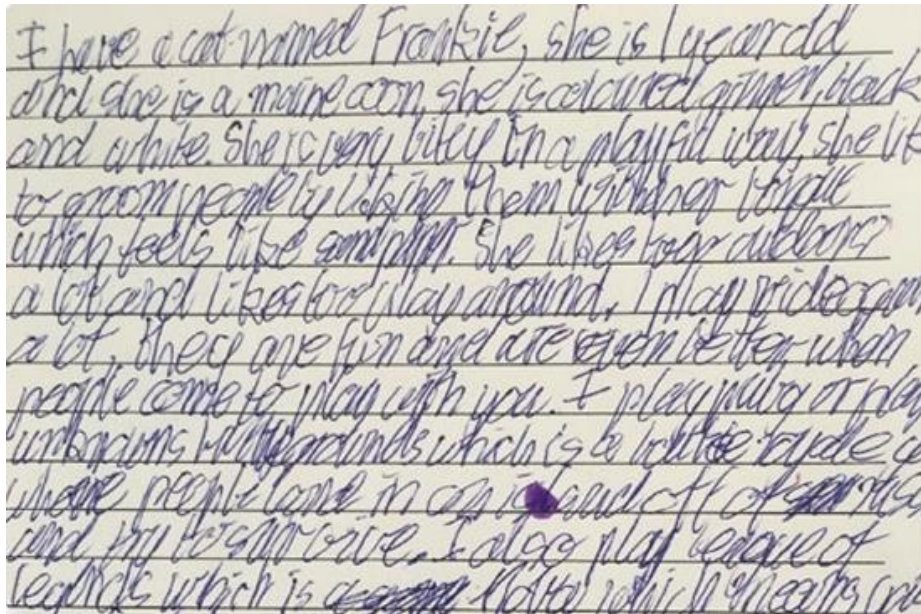 I have a cat named Frankie, she is 1 year old
and she is a maine coon, she is coloured ginger, black
and white. She is very bitey in a playful way, she lik
to groom people by licking them with her tongue
which feels like She likes outdoors
a lot and likes too play around. I play videogam
a lot, they are fun and are even better when
people come to play with you. I play pubg or play
unknowns battlegrounds which is a battle royale g
where people land in and off of
and try to survive. I also play league of
legends which is a Moba which means